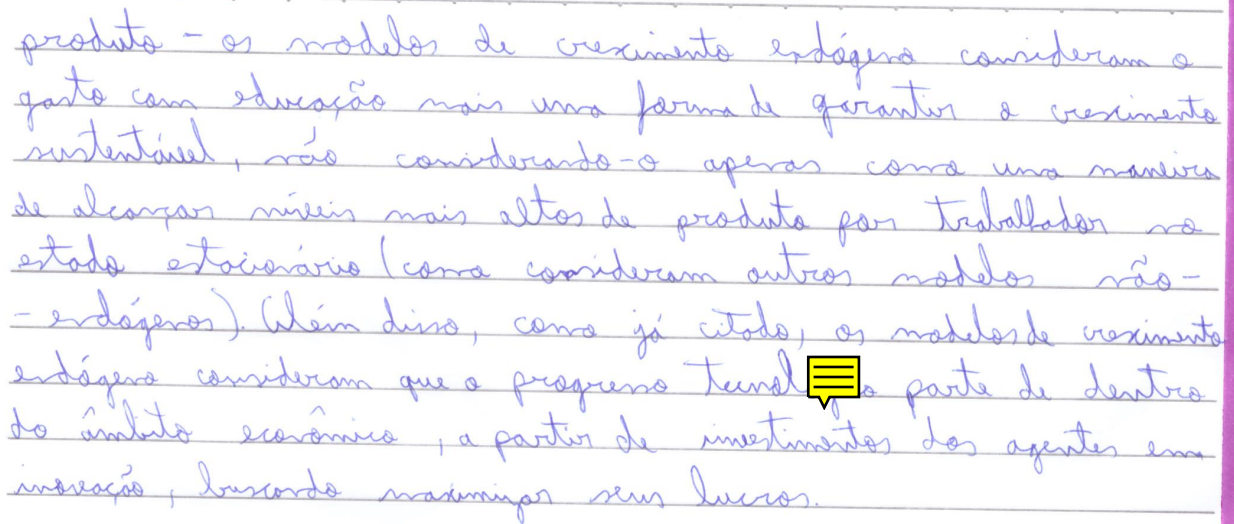 produto - os modelos de crescimento endógeno consideram o
gasto com educação mais uma forma de garantir o crescimento
sustentável, não considerando-o apenas como uma maneira
de alcançar níveis mais altos de produto por trabalhador no
estado estacionário (como consideram outros modelos não-
-endógenos). Além disso, como já citado, os modelos de crescimento
endógeno consideram que o progresso parte de dentro
do âmbito econômico, a partir de investimentos dos agentes em
inovação, buscando maximizar seus lucros.